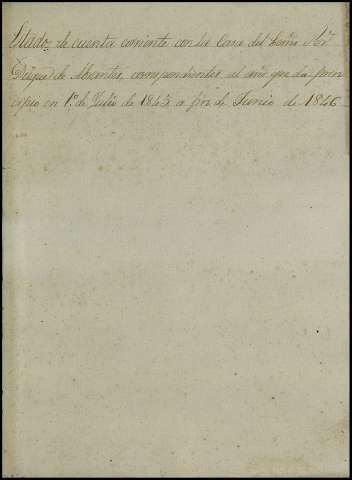 Estado de cuenta corriente con la Casa del Exmo Sor
Duque de Abrantes, correspondientes al año que da prin
cipio en 1º de Julio de 1845 a fin de Junio de 1846